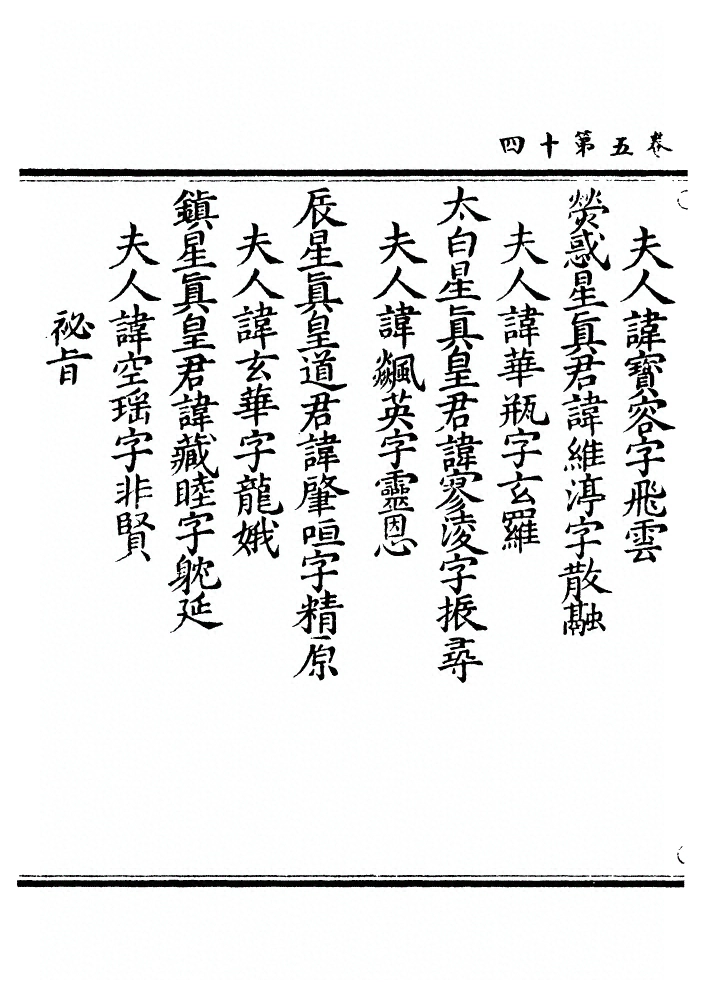 卷五第十四
夫人諱寶容字飛雲
熒惑星眞君諱維渟字散融
夫人諱華瓶字玄羅
太白星眞皇君諱寥淩字振尋
夫人諱飈英字靈恩
辰星眞皇道君諱肇咺字精源
夫人諱玄華字龍娥
鎮星眞皇君諱藏睦字躭延
夫人諱空瑶字非賢
祕旨